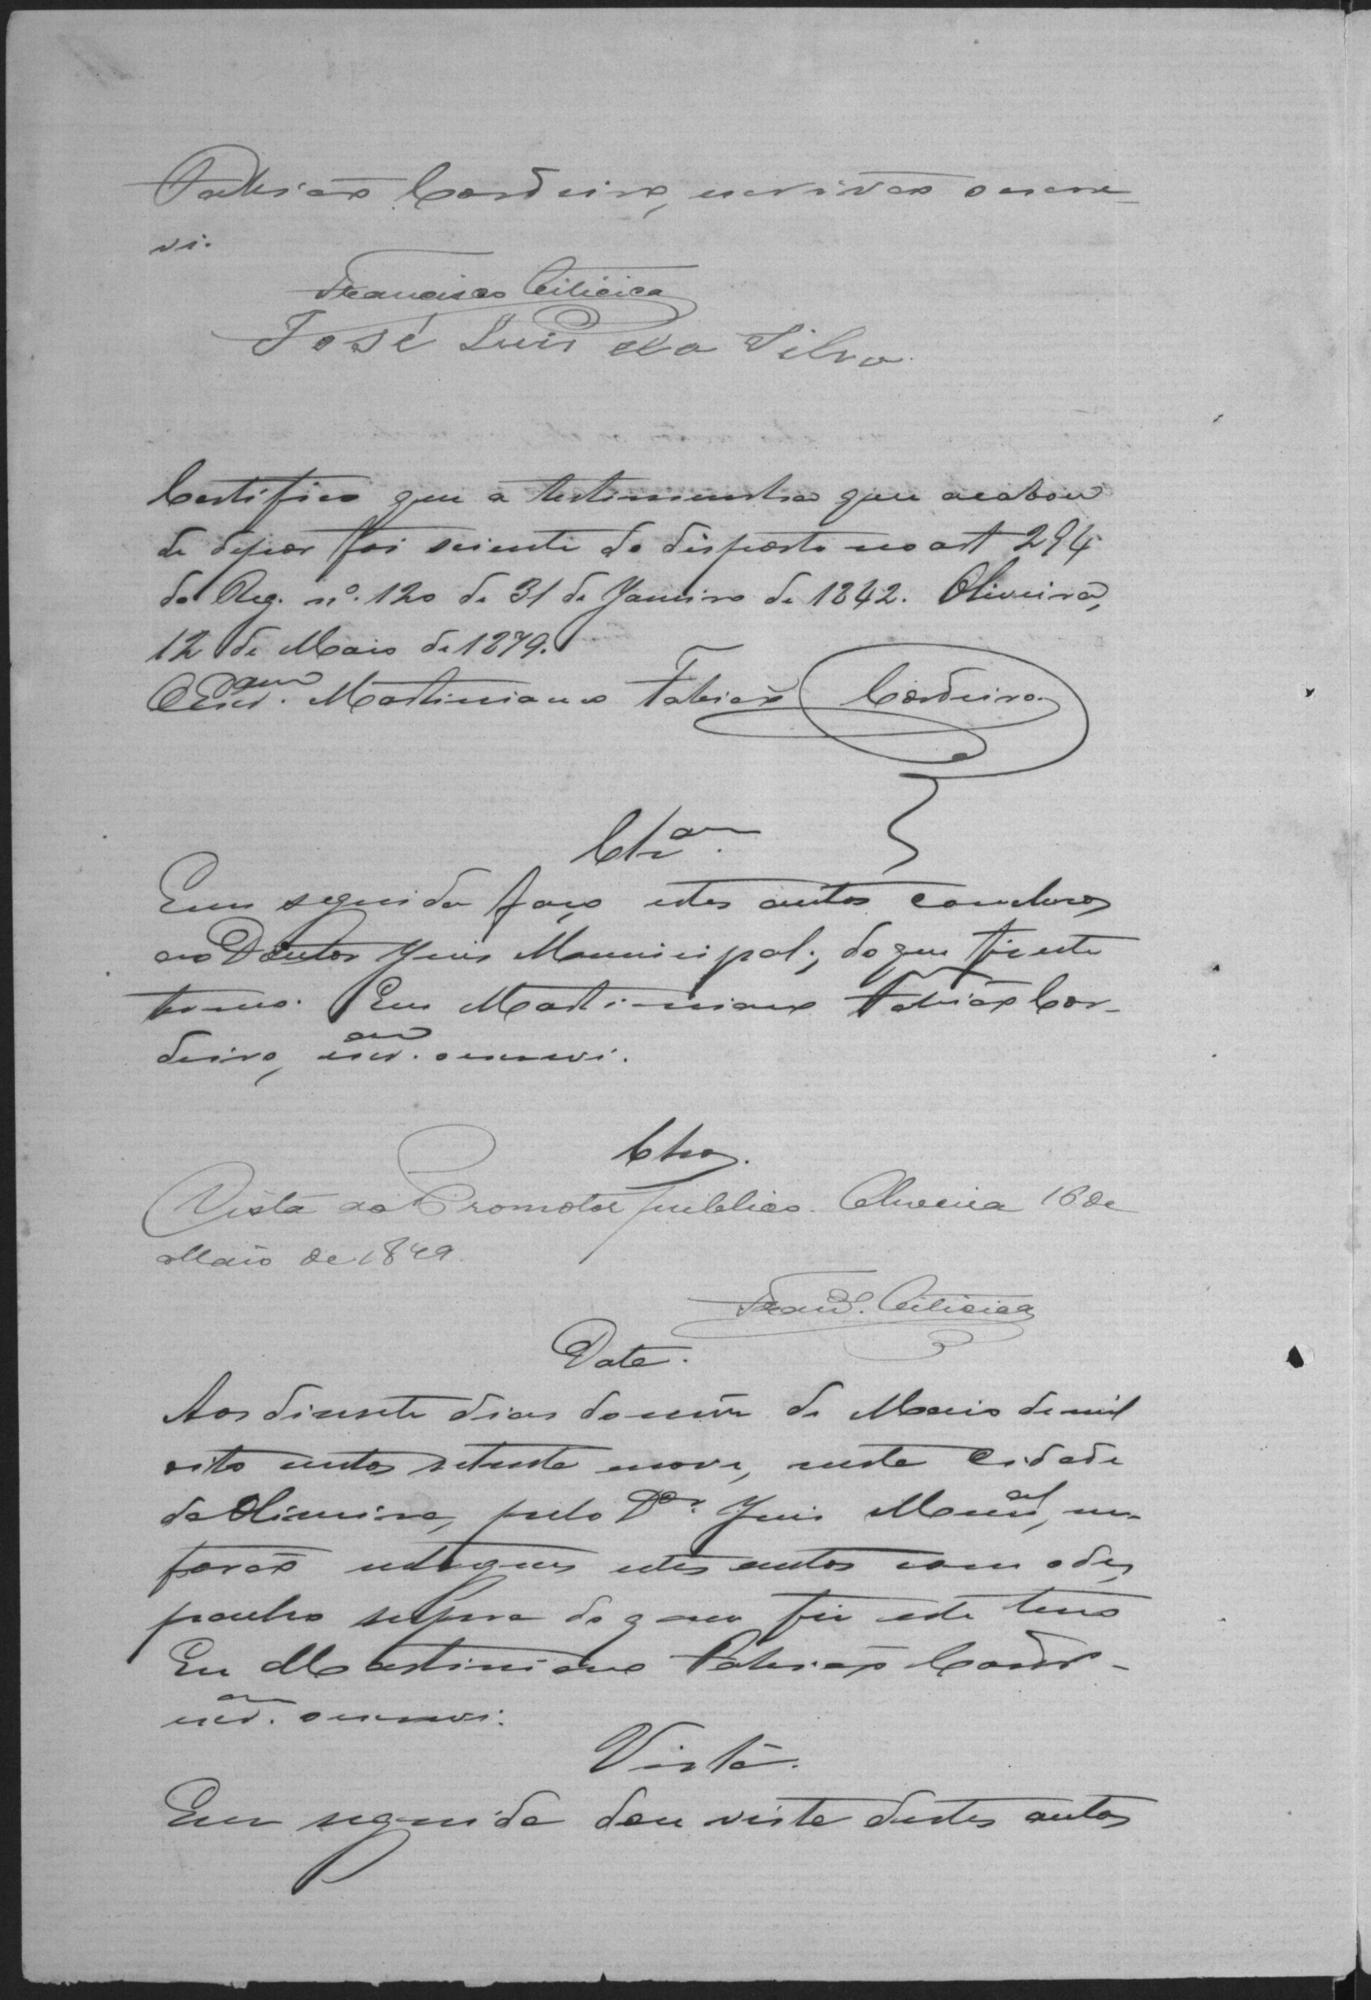 Fabrião Cordeiro, escrivão o escre-
vi.
Francisco Cilicica
José Luis da Silva.
Certifico que a testimunha que acabou
de depor foi sciente do disposto no art 294
do Reg. nº. 120 de 31 de Janeiro de 1842. Oliveira,
12 de Maio de 1879.
O Escr.am Martiniano Fabrião Cordeiro
Clz.am
Em seguida faço estes autos conclusos
ao Doutor Juis Municipal; do que fiz este
termo. Eu Martiniano Fabrião Cor-
deiro, escr.am o escrevi.
Clzos.
Vista ao Promotor publico. Oliveira 16 de
Maio de 1879.
Franco. Cilicica
Data.
Aos disesete dias do mês de Maio de mil
oito centos setenta nove, nesta Cidade
da Oliveira, pelo Dor. Juis Mun.al, me
forão entregues estes autos com o des
pacho supra do que fiz este termo
Eu Martiniano Fabrião Cordr.-
escr.am o escrevi.
Vista.
Em seguida dou vista destes autos